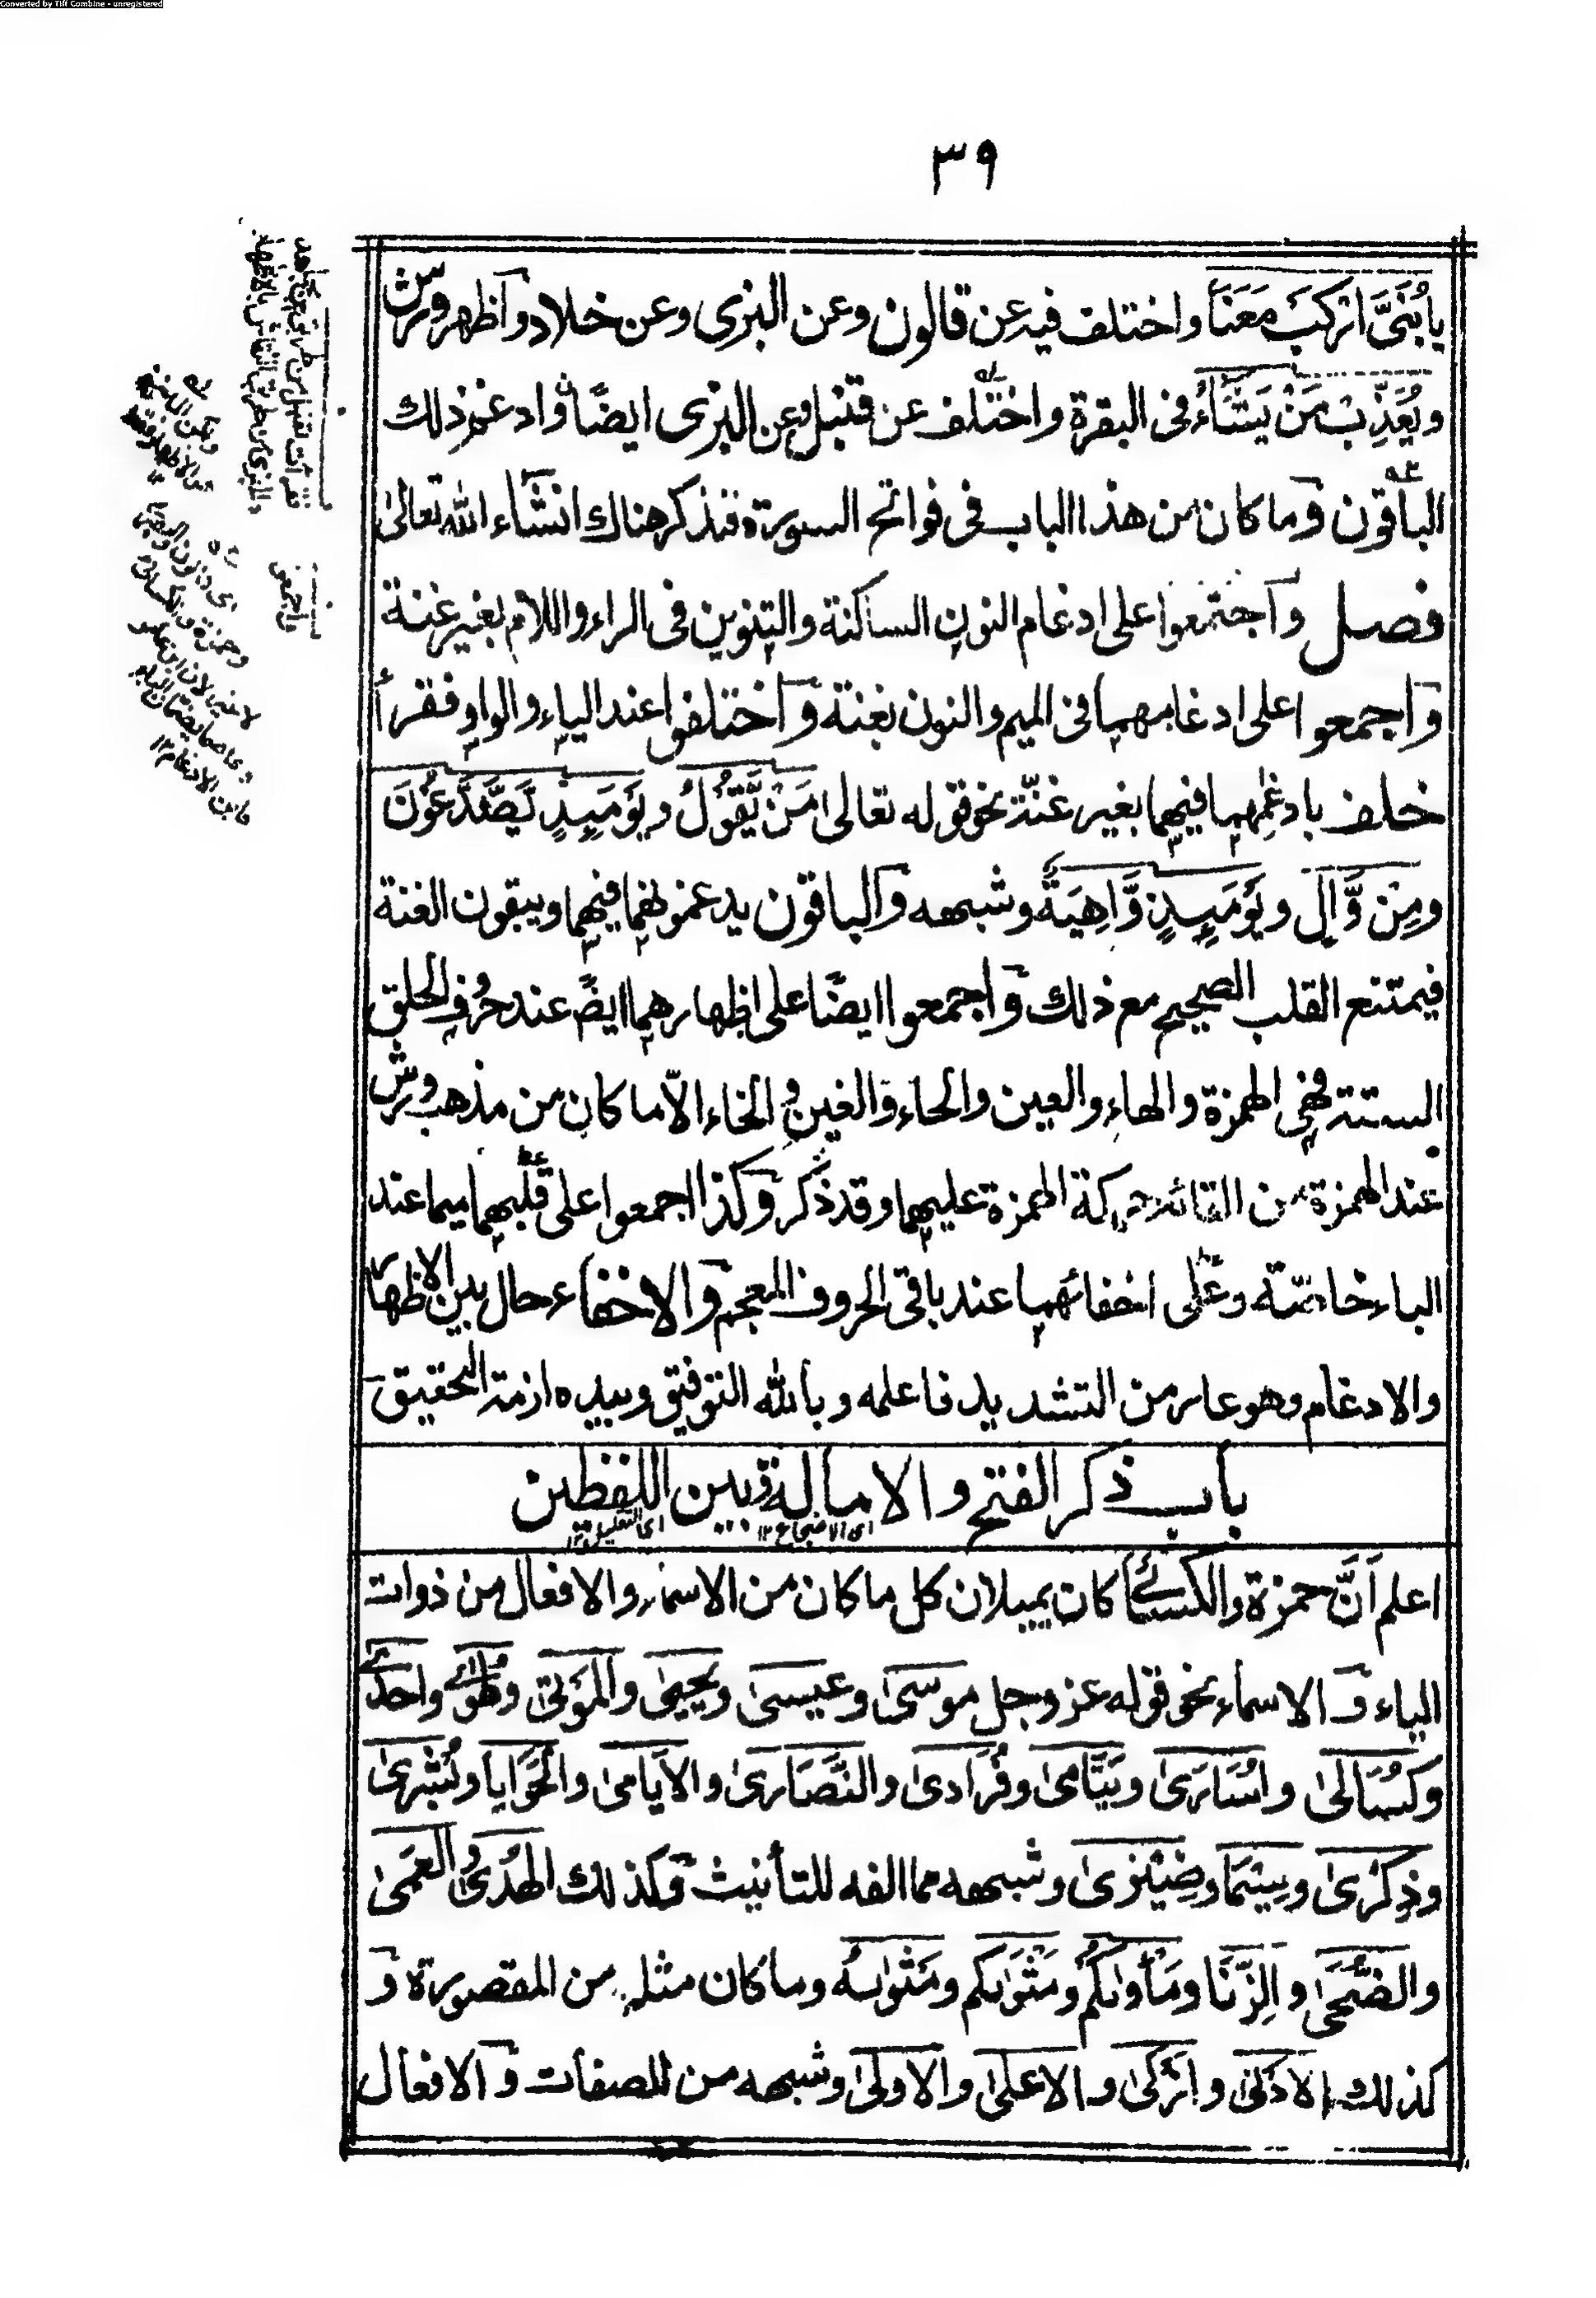 Converted by Tiff Combine - unregistered
٣٩
يا بُنَيَّ ارْكَبْ مَعَنَا واختلف فيه عن قالون وعن البزى وعن خلاد واظهر ورش
ويُعَذِّبْ مَنْ يَشَاءُ فى البقرة واختلف عن قنبل وعن البزى ايضًا وادغم ذلك
الباقون وما كان من هذا الباب فى فواتح السورة فنذكر هناك انشاء الله تعالىٰ
فصل واجتمعوا على ادغام النون الساكنة والتنوين فى الراء واللام بغير غنة
واجمعوا على ادغامهما فى الميم والنون بغنة واختلفوا عند الياء والواو فقرأ
خلف بادغمهما فيهما بغير غنّة نحو قوله تعالى مَنْ يَّقُوْلُ ويَوْمَئِذٍ يَصَّدَّعُوْنَ
ومِنْ وَّالٍ ويَوْمَئِذٍ وَّاهِيَةٌ وشبهه والباقون يدغمونهما فيهما ويبقون الغنة
فيمتنع القلب الصحيح مع ذلك واجمعوا ايضًا على اظهارهما ايضً عند حروف الحلق
الستة فهى الهمزة والهاء والعين والحاء والغين والخاء الاّ ما كان من مذهب ورش
عند الهمزة من القائه حركة الهمزة عليهما وقد ذكر وكذا اجمعوا على قلبهما ميما عند
الباء خاصّة وعلى اخفائهما عند باقى الحروف المعجم والاخفاء حال بين الاظهار
والادغام وهو عار من التشديد فاعلمه وبالله التوفيق وبيده ازمة التحقيق
باب ذكر الفتح والامالة وبين اللفظين
اى الاضجاع ١٢ اى التقليل ١٢
اعلم اَنَّ حمزة والكسائى كان يميلان كل ما كان من الاسماء والافعال من ذوات
الياء و الاسماء نحو قوله عز وجل موسىٰ وعيسىٰ ويحيىٰ والمَوْتىٰ وطُوٰى واحدى
وكُسَالىٰ واُسَارىٰ ويَتَامىٰ وفُرَادىٰ والنَّصَارىٰ والاَيَامىٰ والحَوَايا وبُشْرىٰ
وذِكْرىٰ وسِيْمَا وضِيْزىٰ وشبهه مما الفه للتأنيث وكذلك الهُدىٰ والعَمىٰ
والضُّحىٰ والزِّنَا ومَأْوٰىكُمْ ومَثْوٰىكم ومَثْوٰىهُ وما كان مثله من المقصورة و
كذلك الادْنىٰ وازْكىٰ والاعلىٰ والاولىٰ وشبهه من للصفات والافعال